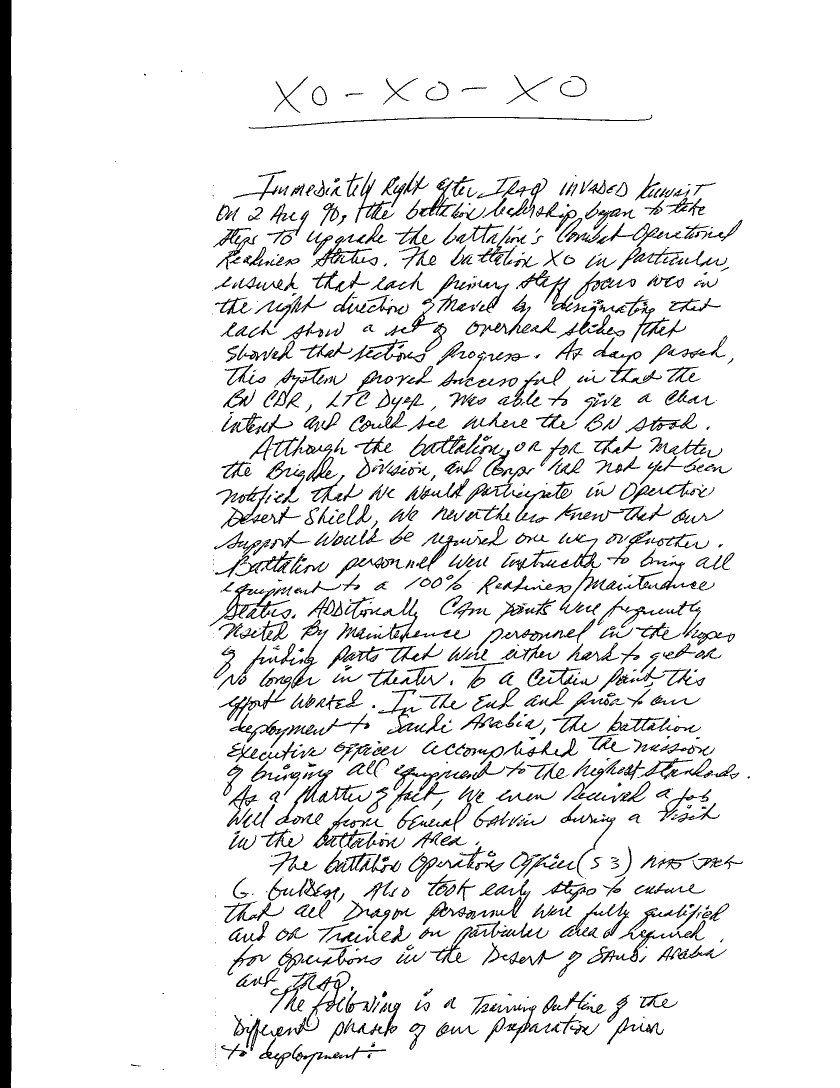 XO - XO - XO
Immediately Right after IRAQ INVADED KUWAIT
On 2 Aug 90, the battalion leadership began to take
steps to upgrade the battalion's Combat Operational
Readiness Status. The battalion XO in Particular,
ensured that each primary staff focus was in
the right direction of travel by designating that
each show a set of overhead slides that
showed that sections progress. As days passed,
this system proved successful in that the
BN CDR, LTC Dyer, was able to give a clear
intent and could see where the BN stood.
Although the battalion, or for that matter
the Brigade, Division, and Corps had not yet been
notified that we would participate in Operation
Desert Shield, we nevertheless knew that our
support would be required one way or another.
Battalion personnel were instructed to bring all
equipment to a 100% Readiness/Maintenance
Status. Additionally Cam points were frequently
visited By maintenence personnel in the hopes
of finding parts that were either hard to get or
No longer in theater. To a certain point, this
effort worked. In the End and prior to our
deployment to Saudi Arabia, the battalion
Executive officer accomplished the mission
of bringing all equipment to the highest standards.
As a matter of fact, we even received a job
well done from General Galvin during a visit
in the battalion Area.
The battalion Operations Officer (S3)
G. Gulden, Also took early steps to ensure
that all Dragon personnel were fully qualified
and or Trained on particular areas required
for operations in the Desert of Saudi Arabia
and IRAQ.
The following is a Training Outline of the
Different phases of our preparation prior
to deployment: